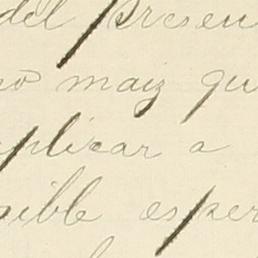 del presen
no maiz qu
plicar a
gible esper